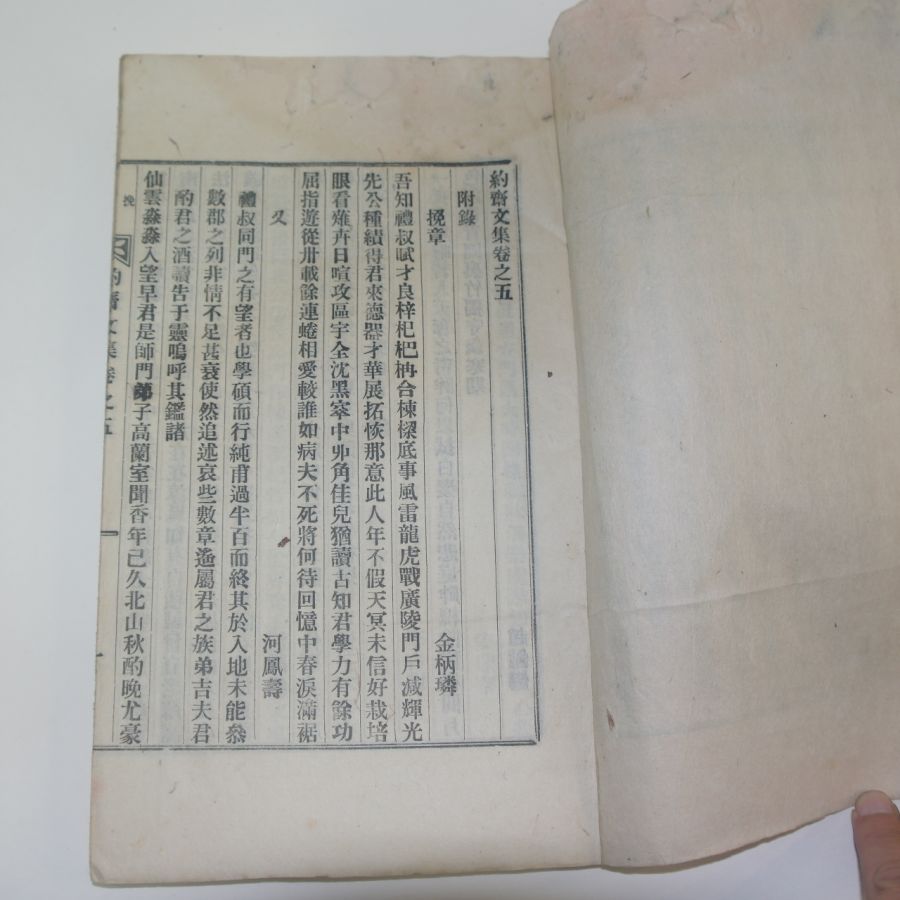 約齋文集卷之五
附錄
挽章
金柄璘
吾知禮叔賦才良梓杞杷柟合棟樑底事風雷龍虎戰廣陵門戶減輝光
先公種績得君來德器才華展拓恢那意此人年不假天冥未信好栽培
眼看薙卉日喧攻區宇全沈黑窣中丱角佳兒猶讀古知君學力有餘功
屈指遊從卅載餘連蜷相愛較誰如病夫不死將何待回憶中春淚滿裾
又
河鳳壽
禮叔同門之有望者也學碩而行純甫過半百而終其於入地未能參
數郡之列非情不足甚衰使然追述哀些數章遙屬君之族弟吉夫君
酌君之酒讀告于靈嗚呼其鑑諸
仙雲淼淼入望早君是師門弟子高蘭室聞香年已久北山秋酌晚尤豪
挽
約齋文集卷之五
一